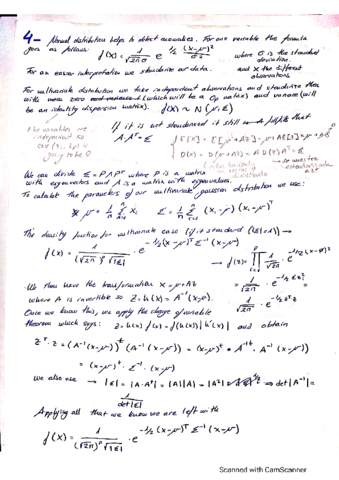 4- Normal distribution helps to detect anomalies. For one variable the formula
goes as follows: f(x) = 1/√2πσ e^-1/2 (x-μ)²/σ² where σ is the standard
deviation,
and x the different
observations
For an easier interpretation we standarize or data.
For multivariate distribution we take independent observations and standarize them
with mean zero (which will be a Op vector) and variance (will
be an identity dispersion matrix). f(x) ~ N(μ, Σ)
The variables are
independent so
going to be 0
If it is not standarized it still that
A·Aᵀ = Σ
We can divide Σ = PΛPᵀ where P is a matrix
with eigenvectors and Λ is a matrix with eigenvalues.
To calculate the parameters of our multivariate gaussian distribution we use:
μ = 1/n Σ xi Σ = 1/n Σ (xi - μ)(xi - μ)ᵀ
The density function for multivariate case (if it standard (|Σ|=1)) →
f(x) = 1/(√2π)ᵖ √|Σ| · e^-1/2(x-μ)ᵀ Σ⁻¹ (x-μ)
We then have the transformation x = μ + AZ
where A is invertible so Z = h(x) = A⁻¹(x-μ).
Once we know this, we apply the change of variable
theorem which says: Z = h(x) f(x) = f(h(x)) |h'(x)| and obtain
Zᵀ·Z = (A⁻¹(x-μ))ᵗ (A⁻¹(x-μ)) = (x-μ)ᵗ · A⁻¹ᵗ · A⁻¹(x-μ)
= (x-μ)ᵗ · Σ⁻¹ · (x-μ)
we also use → |Σ| = |A·Aᵗ| = |A||A| = |A²| → det|A⁻¹| =
1/det|Σ|
Applying all that we know we are left with
f(x) = 1/(√2π)ᵖ √|Σ| · e^-1/2 (x-μ)ᵀ Σ⁻¹ (x-μ)
Scanned with CamScanner